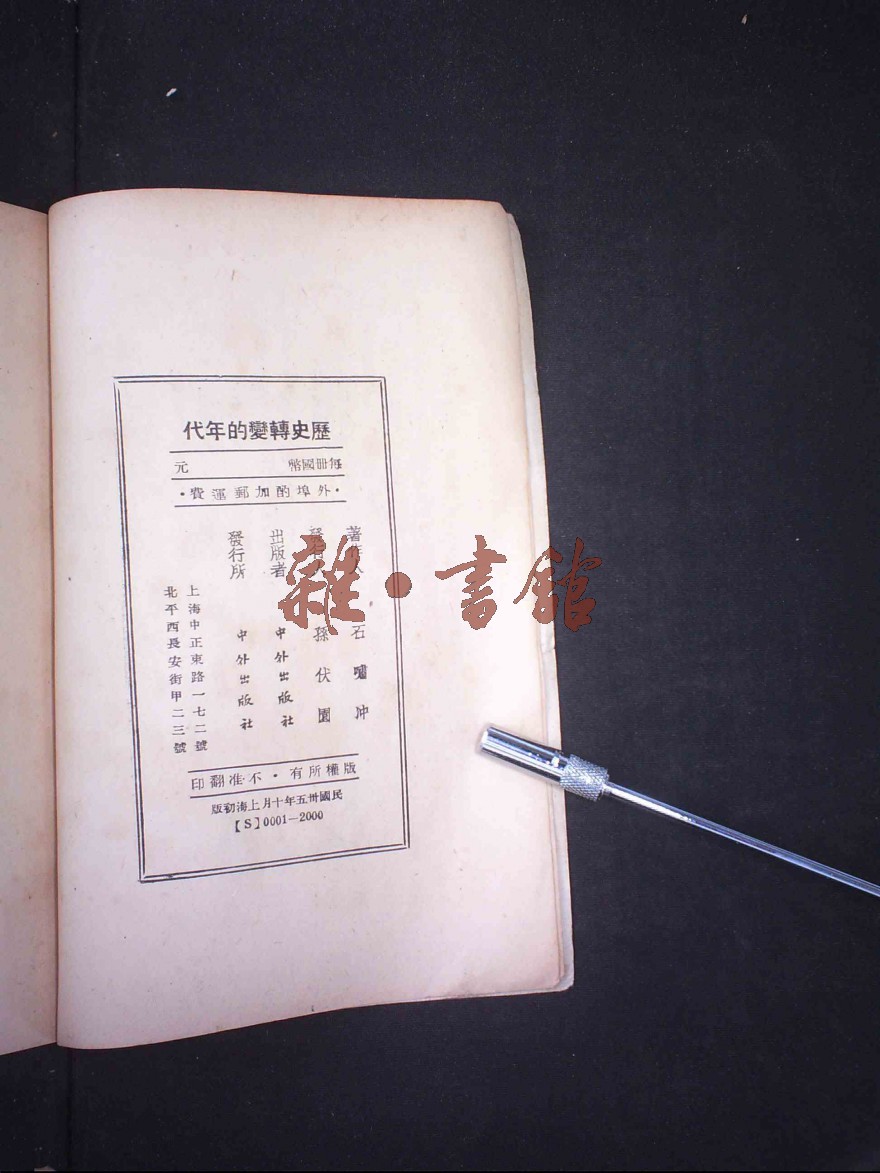 歷史轉變的年代
每冊國幣 元
•外埠酌加郵運費•
著作人 石嘯冲
發行人 孫伏園
出版者 中外出版社
發行所 中外出版社
上海中正東路一七二號
北平西長安街甲二三號
版權所有•不准翻印
民國卅五年十月上海初版
【S】0001—2000
雜•書館